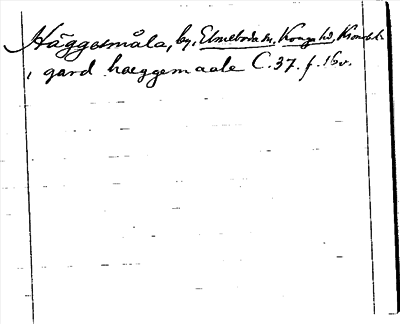 Häggesmåla, by, Elmeboda sn, Konga hd, Kronob. l.
i gard haeggemaale C. 37. f. 16v.